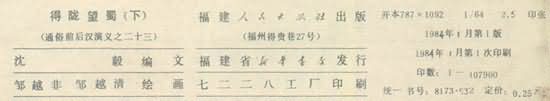 得陇望蜀（下）
（通俗前后汉演义之二十三）
沈毅 编文
邹越非 邹越清 绘画
福建人民出版社 出版
（福州得贵巷27号）
福建省新华书店 发行
七二二八工厂 印刷
开本787×1092 1/64 2.5 印张
1984年1月第1版
1984年1月第1次印刷
印数：1—107900
统一书号：8173·532 定价：0.25元